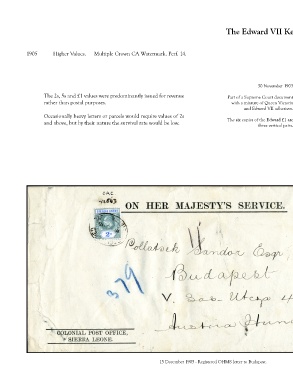 The Edward VII Ke
1905 Higher Values. Multiple Crown CA Watermark. Perf. 14.
The 2s, 5s and £1 values were predominantly issued for revenue
rather than postal purposes.
Occasionally heavy letters or parcels would require values of 2s
and above, but by their nature the survival rate would be low.
30 November 1903
Part of a Supreme Court document
with a mixture of Queen Victoria
and Edward VII adhesives.
The six copies of the Edward £1 are
three vertical pairs.
ON HER MAJESTY'S SERVICE.
379
Sandor Esqr
Budapest
V.
COLONIAL POST OFFICE,
SIERRA LEONE.
15 December 1905 - Registered OHMS letter to Budapest